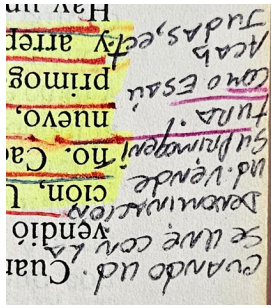 CUANDO UD
SE UNE CON LA
DENOMINACION
UD. VENDE
SU PRIMOGENI
TURA.
COMO ESAÚ
ACAB
JUDAS, ect.
Cuan
vendió
ción, U
ño. Cad
nuevo,
primog
y arrep
Hay un